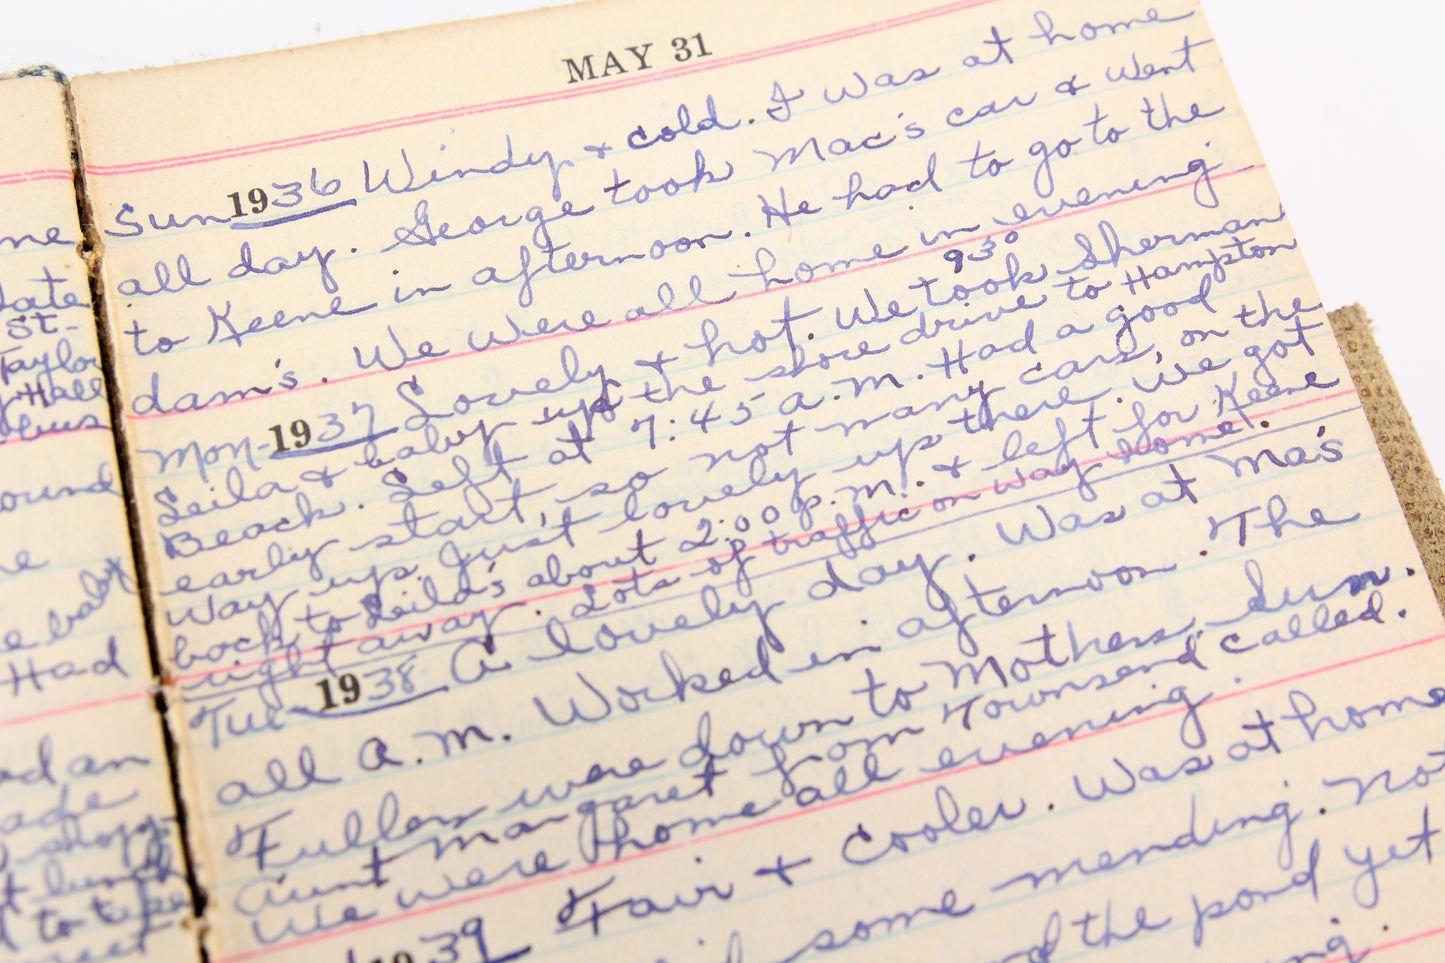 MAY 31
Sun 1936 Windy & cold. I was at home
all day. George took Mac's car & went
to Keene in afternoon. He had to go to the
dam's. We were all home in evening
Mon- 1937 Lovely & hot. We took Sherman
930
Leila & baby up the shore drive to Hampton
Beach. Left at 7:45 a.m. Had a good
early start, so not many cars, on the
way up. Just lovely up there. We got
back to Leila's about 2:00 p.m. & left for Keene
right away. Lots of traffic on way home.
Tue- 1938 A lovely day. Was at Ma's
all A.M. Worked in afternoon. The
Fullers were down to Mothers. Sun.
Aunt Margaret from Townsend called.
We were home all evening.
1939 Fair & cooler. Was at home
some mending. Not
the pond yet
ne
late
St-
Taylor
Hall
ound
e baby
Had
ad an
ade
shop-
lunch
to take